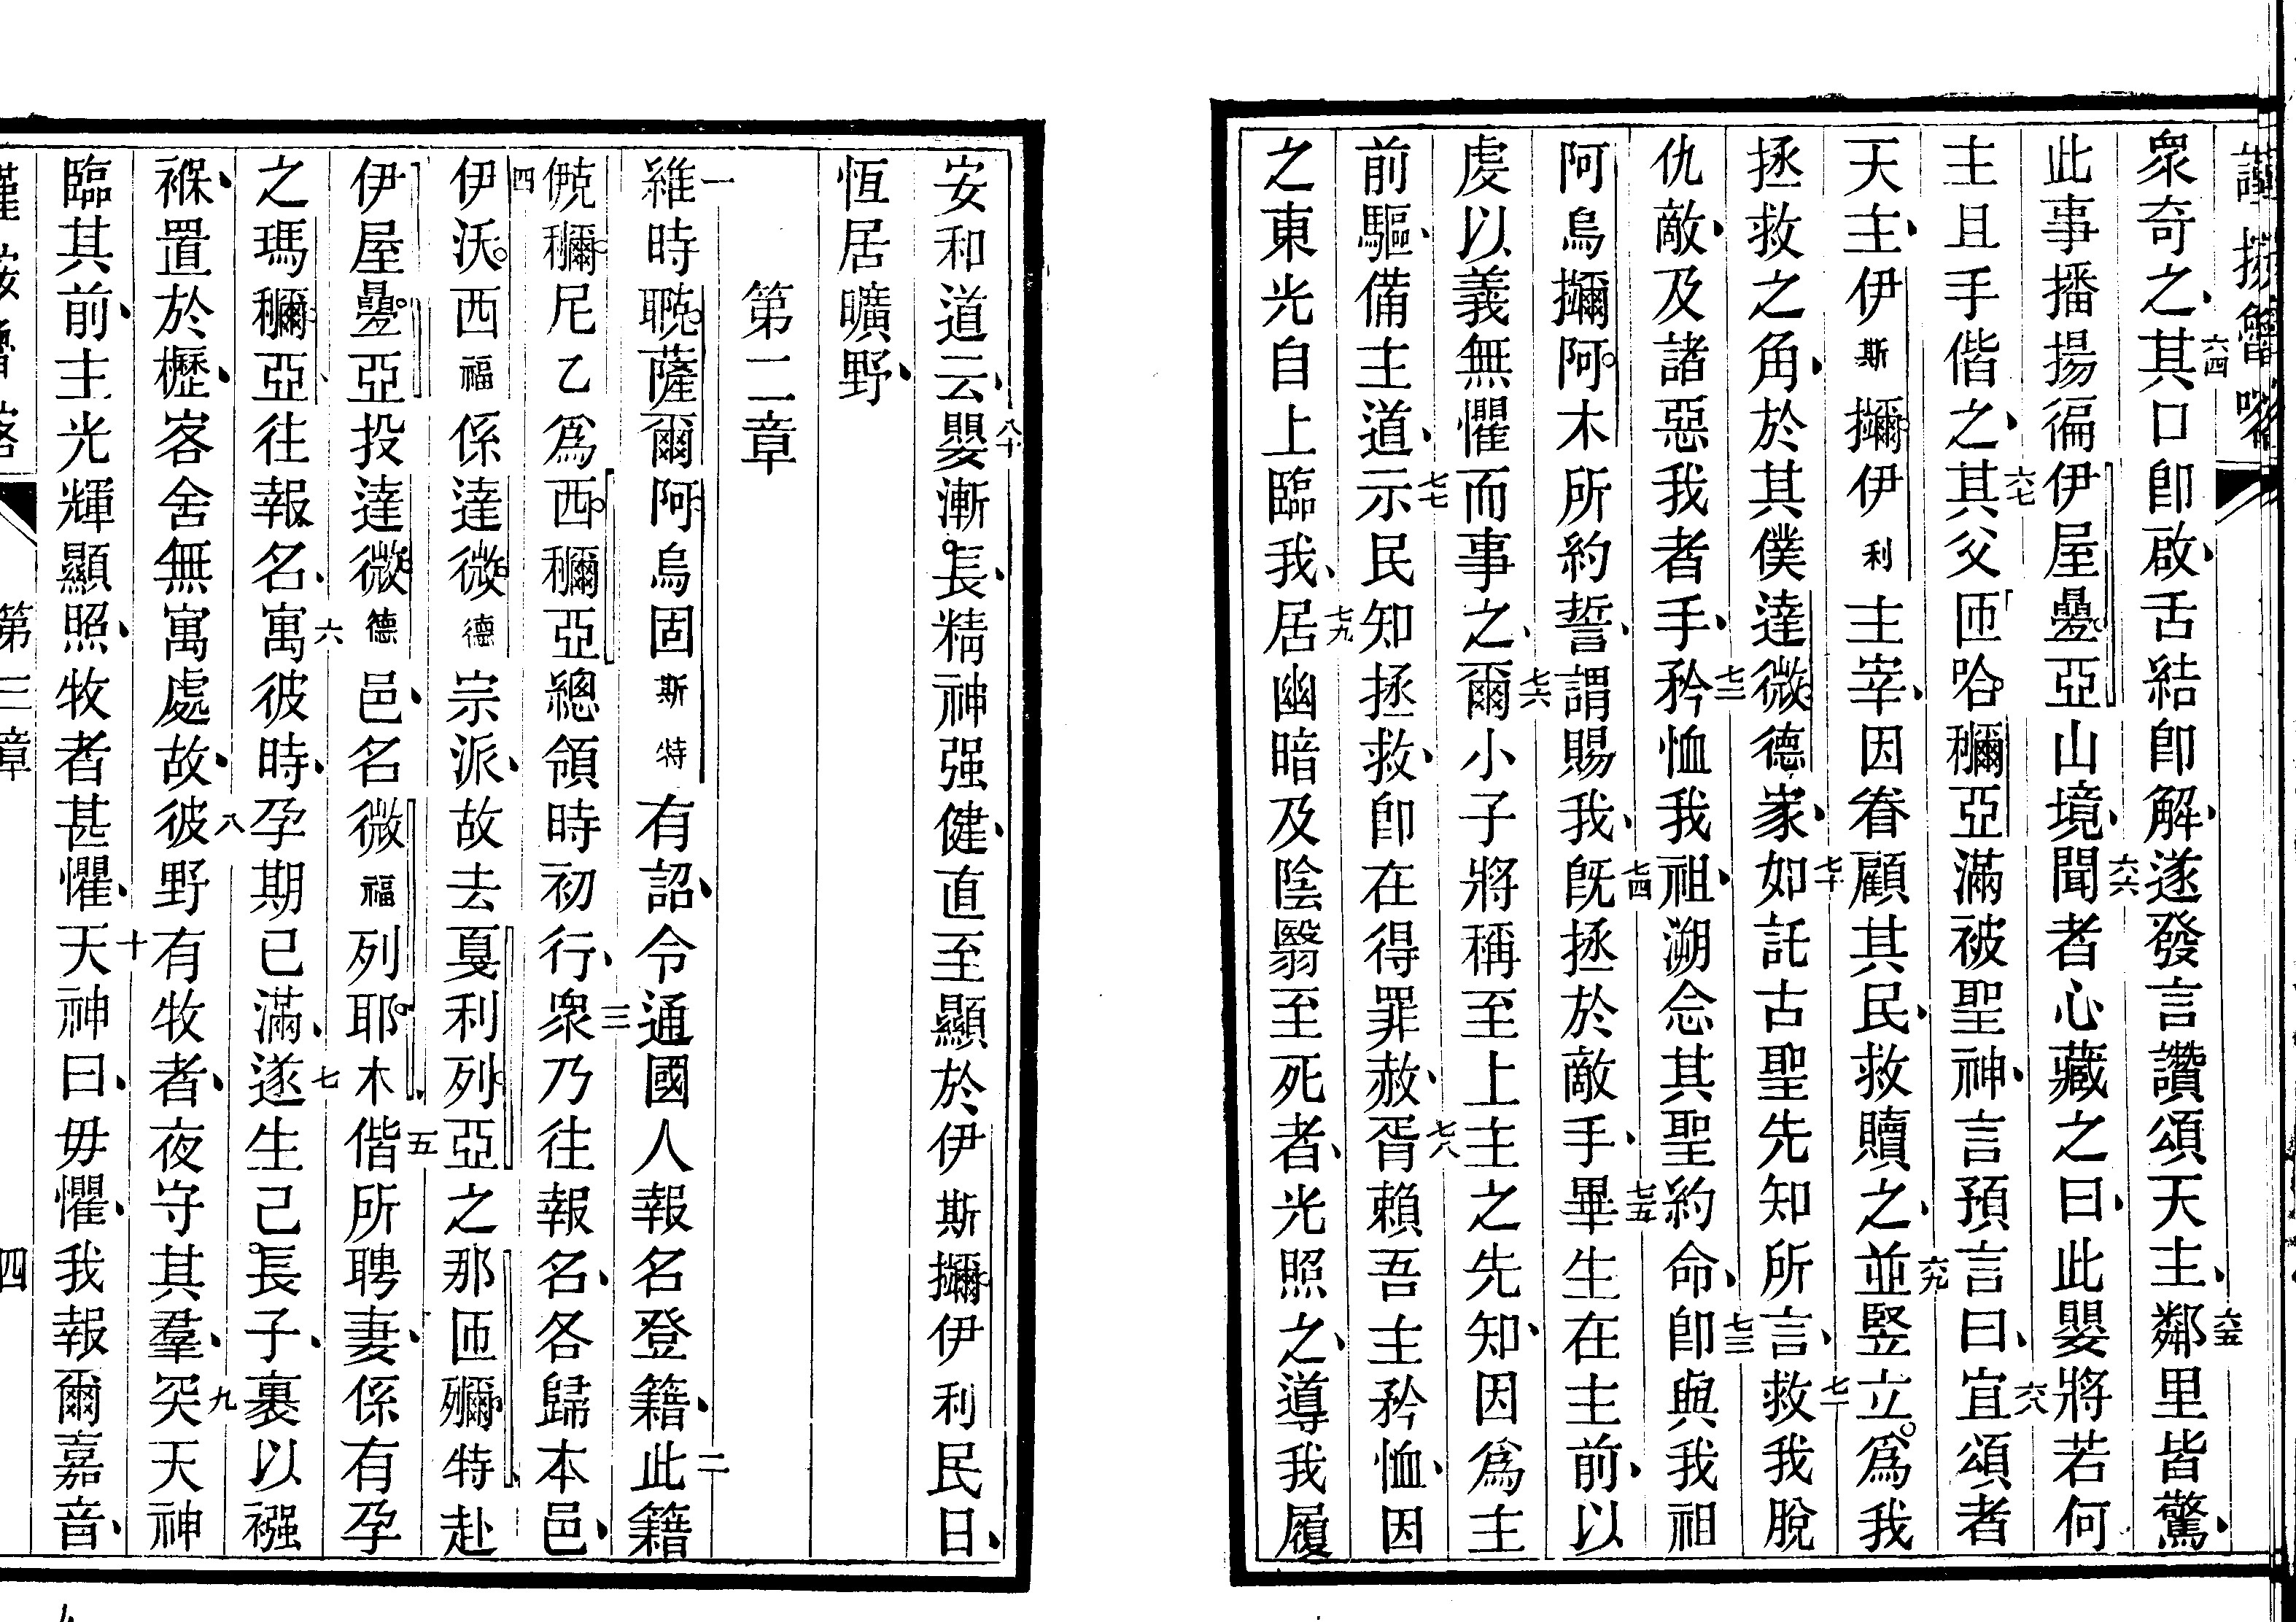 衆奇之、六四其口卽啟、舌結卽解、遂發言讚頌天主、六五鄰里皆驚、
此事播揚徧伊屋疊亞山境、六六聞者心藏之曰、此嬰將若何
主且手偕之、六七其父匝哈穪亞滿被聖神、言預言曰、六八宜頌者
天主、伊斯擟伊利主宰、因眷顧其民、救贖之、六九並竪立爲我
拯救之角、於其僕達微德家、七十如託古聖先知所言、七一救我脫
仇敵、及諸惡我者手、七二矜恤我祖、溯念其聖約命、七三卽與我祖
阿烏擟阿木所約誓、謂賜我、七四旣拯於敵手、七五畢生在主前、以
虔以義無懼而事之、七六爾小子將稱至上主之先知、因爲主
前驅、備主道、七七示民知拯救、卽在得罪赦、七八胥賴吾主矜恤、因
之東光自上臨我、七九居幽暗及陰翳至死者、光照之、導我履
安和道云、八十嬰漸長、精神强健、直至顯於伊斯擟伊利民日、
恆居曠野、
第二章
一維時聴薩爾阿烏固斯特有詔、令通國人報名登籍、二此籍
穪尼乙爲西穪亞總領時初行、三衆乃往報名、各歸本邑、
四伊沃西福係達微德宗派、故去戛利列亞之那匝殢特赴
伊屋疊亞投達微德邑、名微福列耶木、五偕所聘妻、係有孕
之瑪穪亞、往報名、六寓彼時、孕期已滿、七遂生己長子、裹以襁
褓、置於櫪、客舍無寓處故、八彼野有牧者、夜守其羣、九突天神
臨其前、主光輝顯照、牧者甚懼、十天神曰、毋懼、我報爾嘉音、
第二章
四